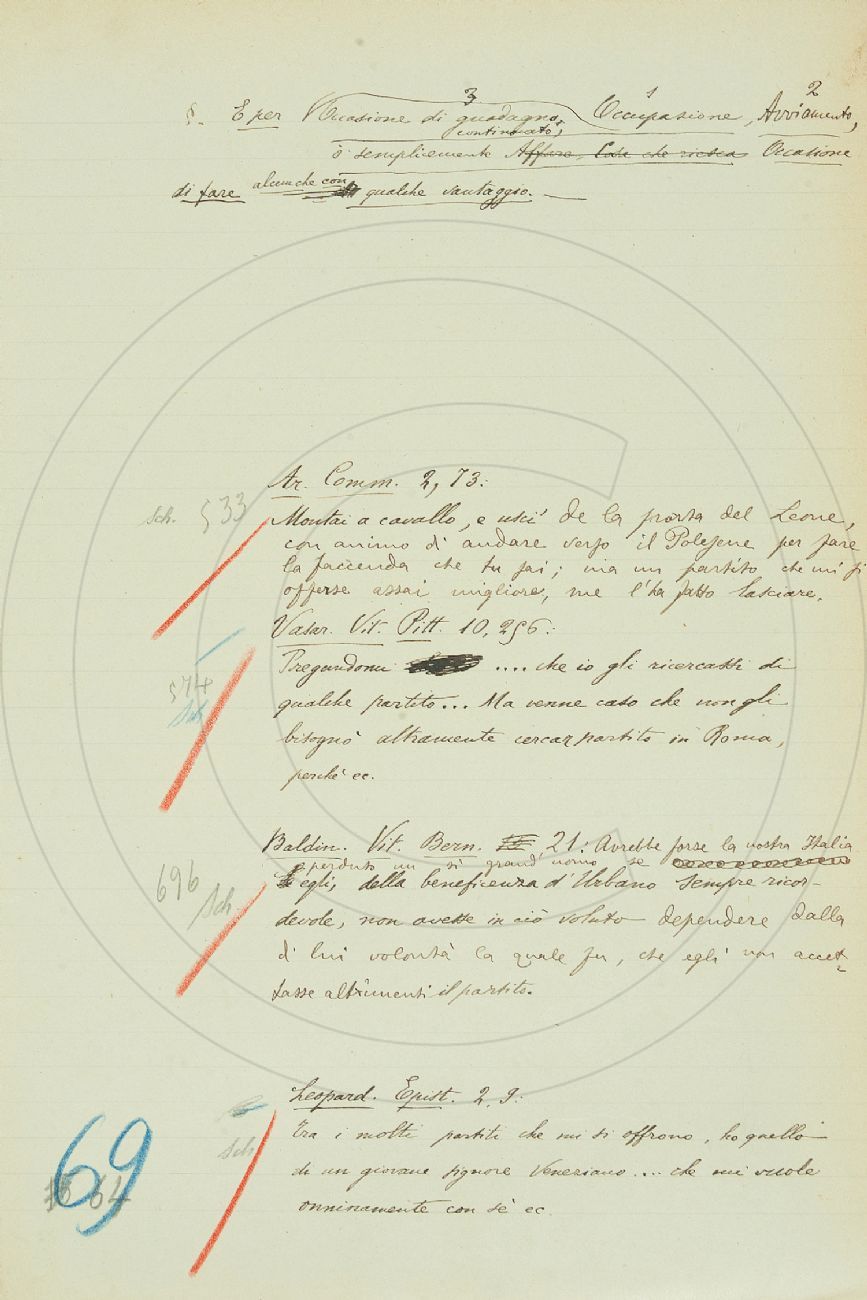 3 1 2
§. E per Occasione di guadagno, Occupazione, Avviamento,
continuato;
o semplicemente Affare, Cosa che riesca Occasione
di fare alcunche con qualche vantaggio. —
Ar. Comm. 2, 73:
sch. 533
Montai a cavallo, e usci' de la porta del Leone,
con animo di andare verso il Polesene per fare
la faccenda che tu sai; ma un partito che mi si
offerse assai migliore, me l'ha fatto lasciare.
Vasar. Vit. Pitt. 10, 256:
Pregandomi .... che io gli ricercassi di
574
sch
qualche partito... Ma venne caso che non gli
bisognò altramente cercar partito in Roma,
perchè ec.
Baldin. Vit. Bern. 21: Avrebbe forse la nostra Italia
perduto un sì grand' uomo se
696 sch
egli, della beneficenza d'Urbano sempre ricor-
devole, non avesse in ciò voluto dependere dalla
di lui volontà la quale fu, che egli non accet-
tasse altrimenti il partito.
Leopard. Epist. 2, 9:
sch
Tra i molti partiti che mi si offrono, ho quello
di un giovane signore Veneziano... che mi vuole
onninamente con sè ec.
69
64